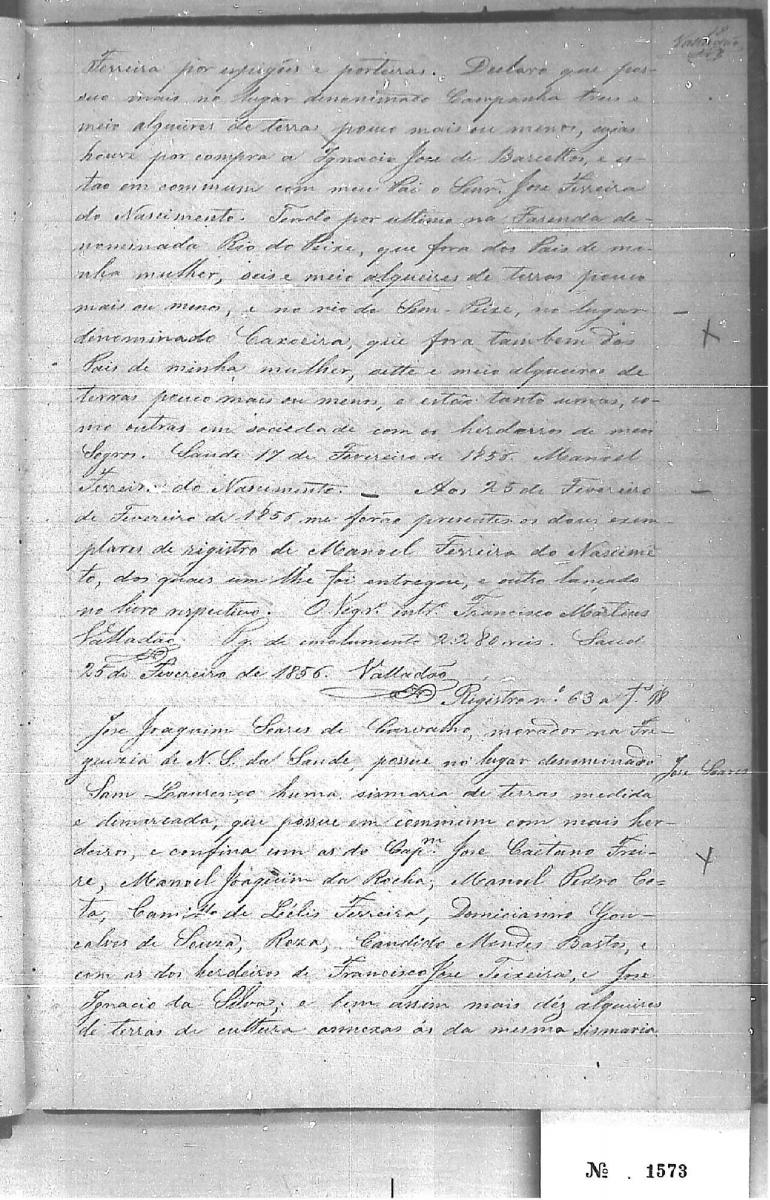 18
Valladão
Ferreira por espigões e porteiras. Declaro que pos-
suo mais no lugar denominado Campanha tres e
meio alqueires de terras pouco mais ou menos, cujas
houve por compra a Ignacio Jose de Barcellos, e es-
tão em commum com meu Pai o Senr. Jose Ferreira
do Nascimento. Tendo por ultimo na Fazenda de-
nominada Rio do Peixe, que fora dos Pais de mi-
nha mulher, seis e meio alqueires de terras pouco
mais ou menos, e no rio do Sem-Peixe, no lugar
denominado Caxoeira, que fora tambem dos
Pais de minha mulher, sette e meio alqueires de
terras pouco mais ou menos, e estão tanto umas, co-
mo outras em sociedade com os herderros de meu
Sogros. Saude 17 de Fevereiro de 1856. Manoel
Ferreira do Nascimento. — Aos 25 de Fevereiro
de Fevereiro de 1856 me forão presentes os dous exem-
plares de registro de Manoel Ferreira do Nascime
to, dos quaes um lhe foi entregue, e outro lançado
no livro respectivo. O Vigr. intr. Francisco Martins
Valladão Pg. de emolumento 2.280 reis. Saud
25 de Fevereiro de 1856. Valladão
Registro n.º 63 a f.s 18
Jose Joaquim Soares de Carvalho, morador na Fre-
guezia de N. S. da Saude, possue no lugar denominado
Jose Soares
Sam Lourenço huma sismaria de terras medida
e demarcada, que possue em commum com mais her-
deiros, e confina com as do Capm. Jose Caetano Frei-
re, Manoel Joaquim da Rocha, Manoel Pedro Co-
ta, Camillo de Lélis Ferreira, Domicianno Gon-
calves de Souza, Roza, Candido Mendes Bastos, e
com as dos herdeiros de Francisco Jose Teixeira, e Jose
Ignacio da Silva; e bem assim mais déz alqueires
de terras de cultura annexas ás da mesma Sismaria
Nº . 1573